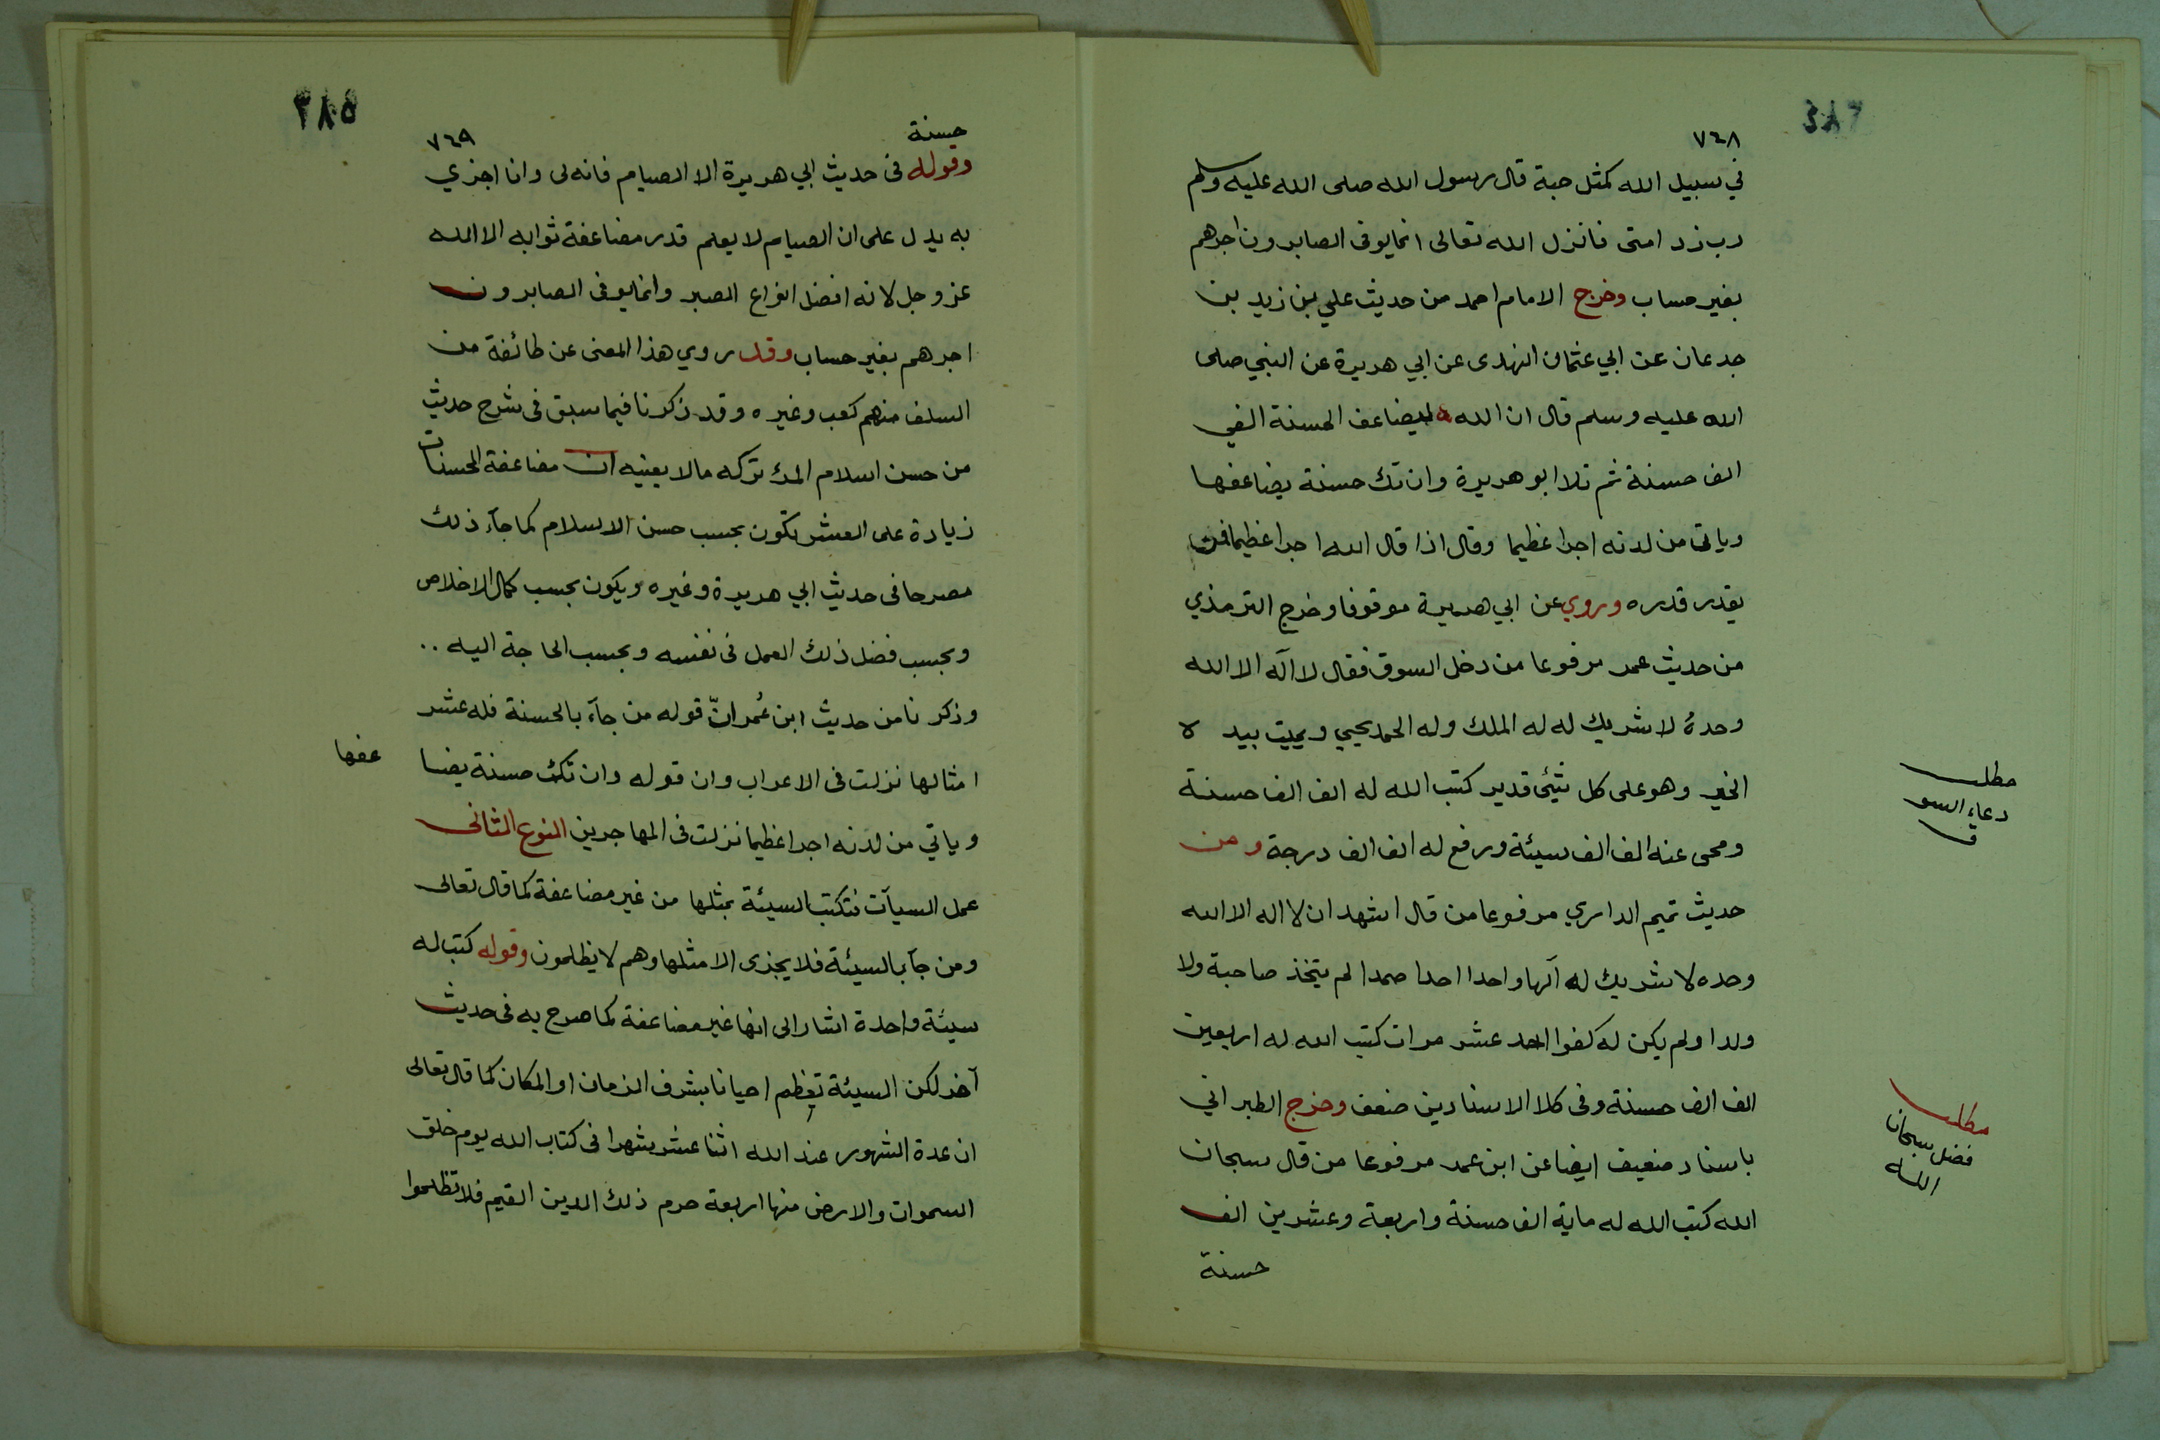 ٧٤٨
في سبيل الله كمثل حبة قال رسول الله صلى الله عليه وسلم
رب زد امتى فانزل الله تعالى انما يوفى الصابرون اجرهم
بغير حساب وخرج الامام احمد من حديث علي بن زيد بن
جدعان عن ابي عثمان النهدى عن ابي هريرة عن النبي صلى
الله عليه وسلم قال ان الله ليضاعف الحسنة الفي
الف حسنة ثم تلا ابو هريرة وان تك حسنة يضاعفها
وياتى من لدنه اجرا عظيما وقال اذا قال الله اجرا عظيما فمن
يقدر قدره وروي عن ابي هريرة موقوفا وخرج الترمذي
من حديث عمر مرفوعا من دخل السوق فقال لا اله الا الله
وحدهُ لا شريك له له الملك وله الحمد يحيي ويميت بيد ه
الخير وهو على كل شئ قدير كتب الله له الف الف حسنة
ومحى عنه الف الف سيئة ورفع له الف الف درجة ومن
حديث تميم الداري مرفوعا من قال اشهد ان لا اله الا الله
وحده لا شريك له آلها واحدا احدا صمدا لم يتخذ صاحبة ولا
ولدا ولم يكن له كفوا احد عشر مرات كتب الله له اربعين
الف الف حسنة وفى كلا الاسنادين ضعف وخرج الطبراني
باسناد ضعيف ايضا عن ابن عمر مرفوعا من قال سبحان
الله كتب الله له ماية الف حسنة واربعة وعشرين الف
حسنة
مطلب
دعاء السو
ق
مطلب
فضل سبحان
الله
٣٨٥
٧٤٩
حسنة
وقوله فى حديث ابي هريرة الا الصيام فانه لى وانا اجزي
به يدل على ان الصيام لا يعلم قدر مضاعفة ثوابه الا الله
عز وجل لانه افضل انواع الصبر وانما يوفى الصابرون
اجرهم بغير حساب وقد روي هذا المعنى عن طائفة من
السلف منهم كعب وغيره وقد ذكرنا فيما سبق فى شرح حديث
من حسن اسلام المرء تركه مالا يعنيه ان مضاعفة الحسنات
زيادة على العشر تكون بحسب حسن الاسلام كما جآء ذلك
مصرحا فى حديث ابي هريرة وغيره ويكون بحسب كمال الاخلاص
وبحسب فضل ذلك العمل فى نفسه وبحسب الحاجة اليه ..
وذكرنا من حديث ابن عُمر انّ قوله من جآء بالحسنة فله عشر
امثالها نزلت فى الاعراب وان قوله وان تك حسنة يضا
عفها
وياتي من لدنه اجرا عظيما نزلت فى المهاجرين النوع الثانى
عمل السيآت فتكتب السيئة بمثلها من غير مضاعفة كما قال تعالى
ومن جآء بالسيئة فلا يجزى الا مثلها وهم لا يظلمون وقوله كتب له
سيئة واحدة اشار الى انها غير مضاعفة كما صرح به فى حديث
آخر لكن السيئة تعظم احيانا بشرف الزمان او المكان كما قال تعالى
ان عدة الشهور عند الله اثنا عشر شهرا فى كتاب الله يوم خلق
السموات والارض منها اربعة حرم ذلك الدين القيم فلا تظلموا